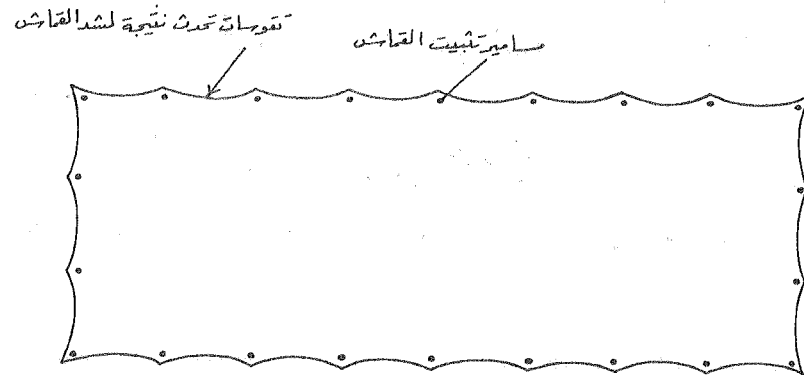 تقوسات تحدث نتيجة لشد القماش
مسامير تثبيت القماش